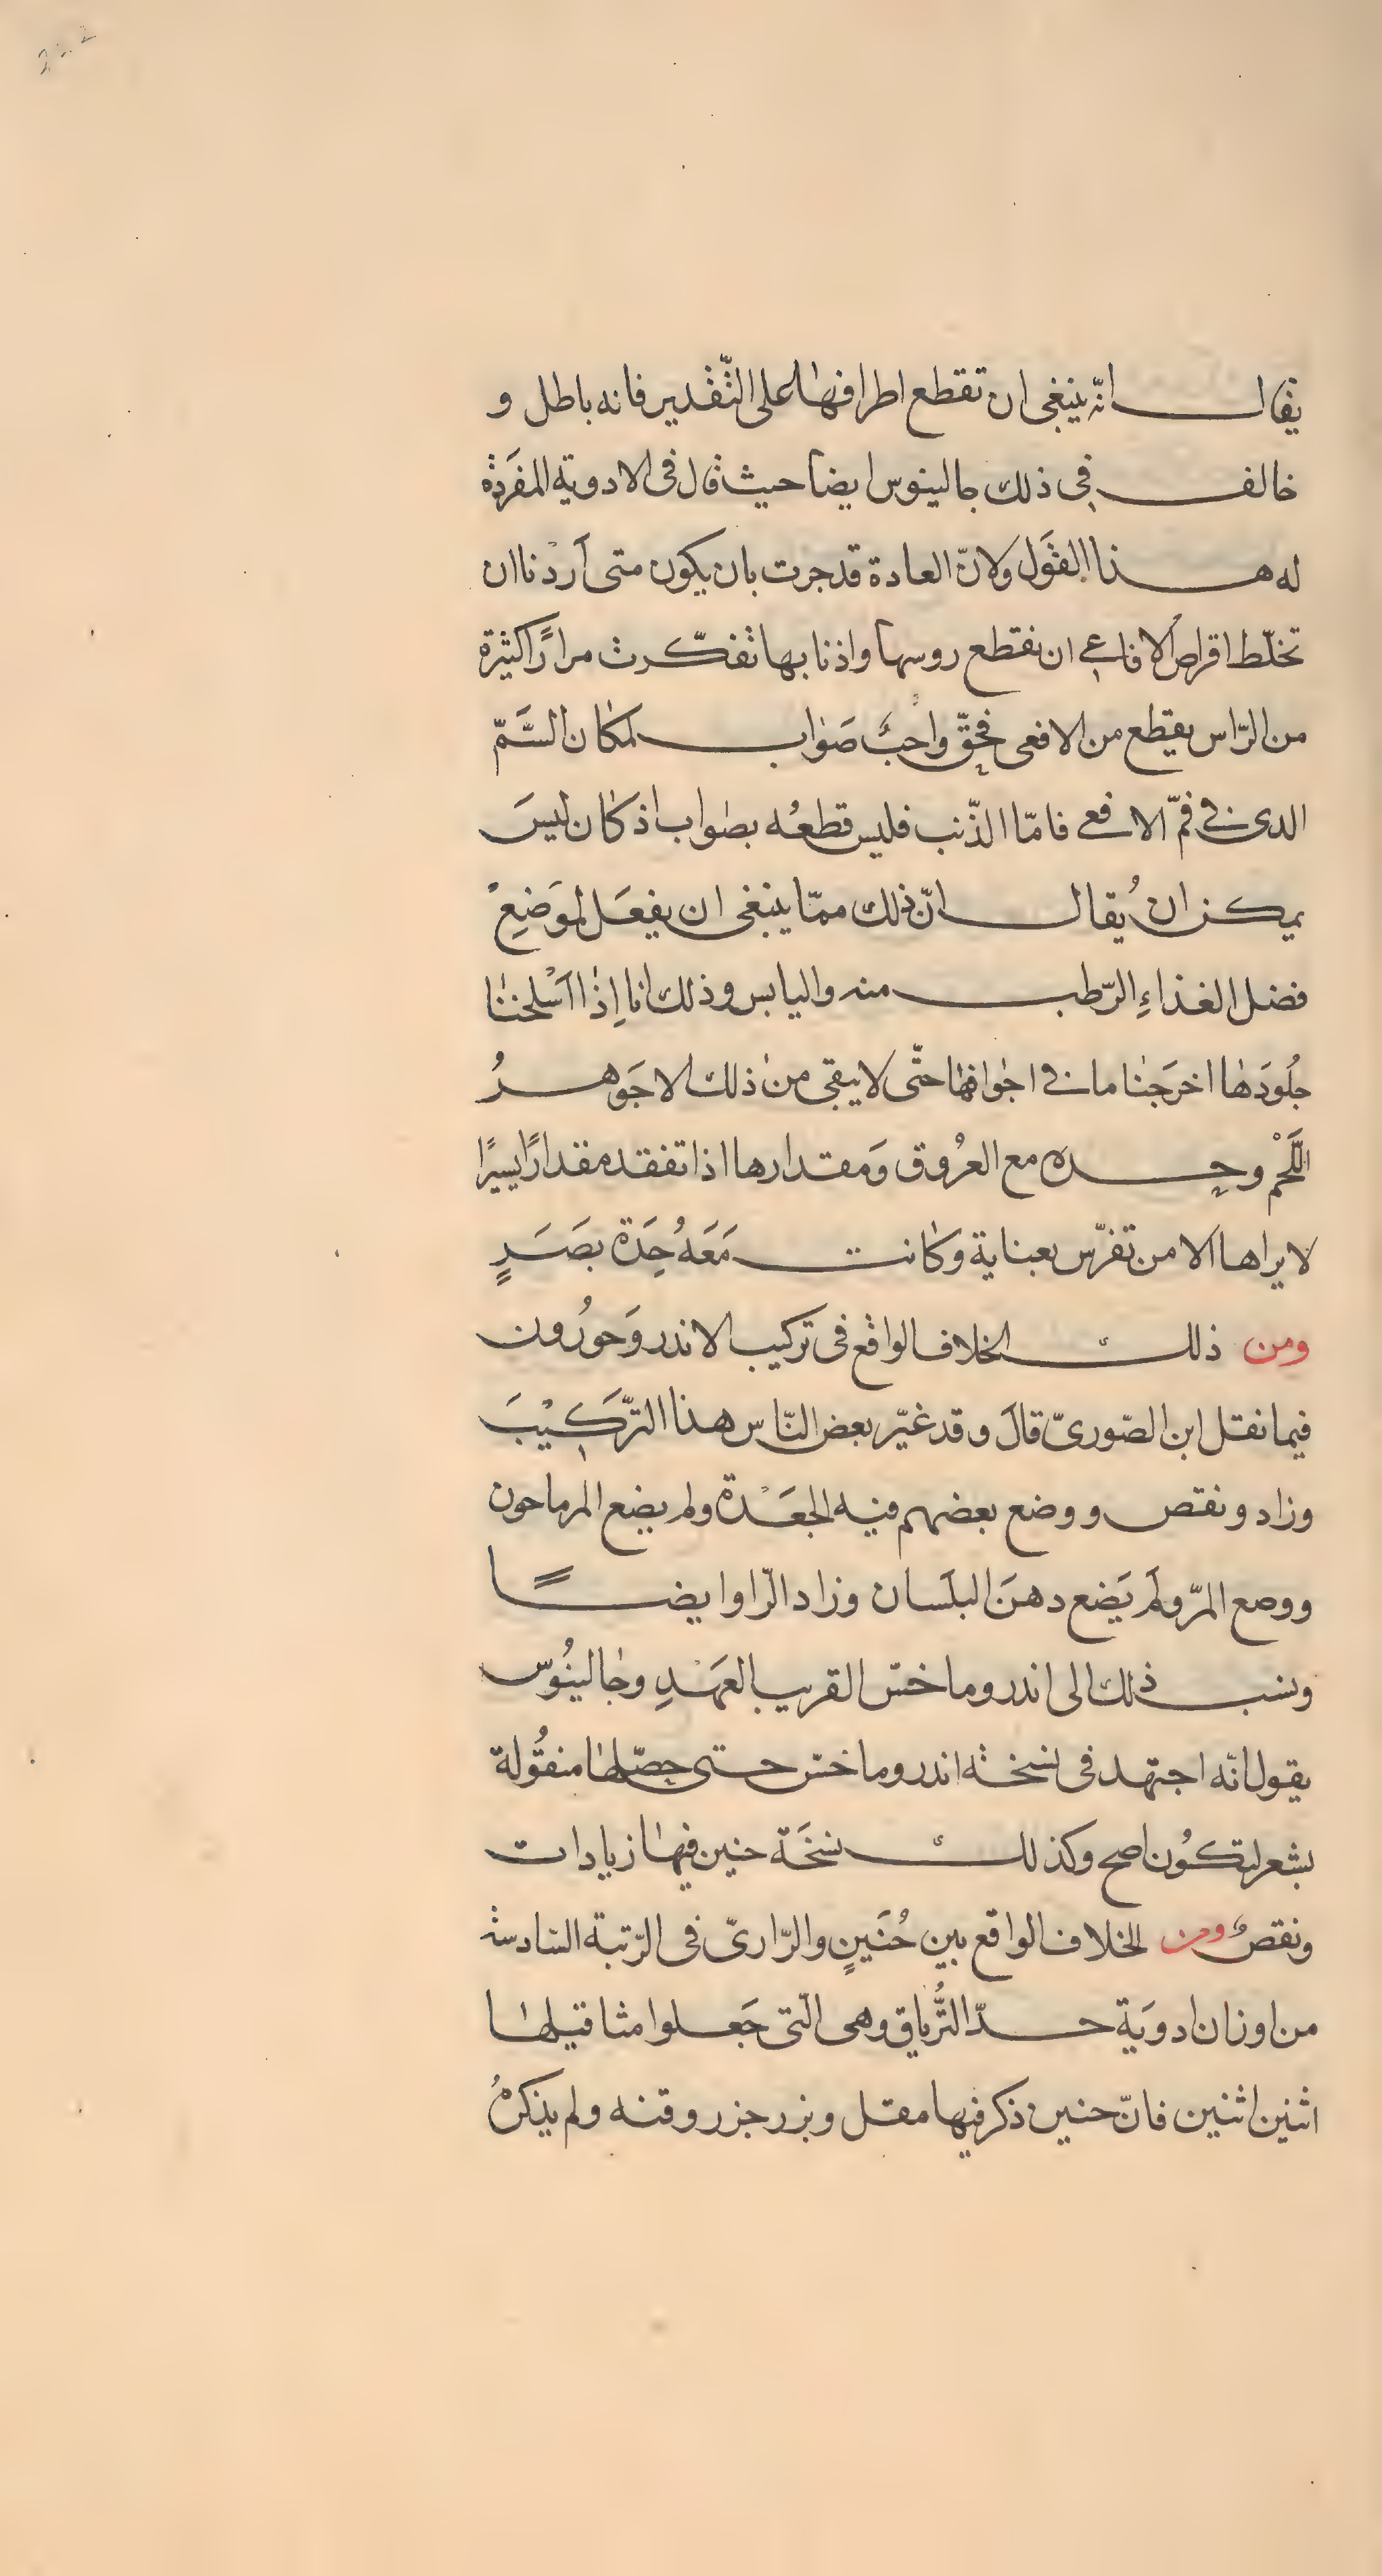 يقال انّه ينبغى ان تقطع اطرافها على التّقدير فانه باطل و
خالف فى ذلك جالينوس ايضا حيث قال فى الادوية المفرَدة
له هذا القَول ولانّ العادة قد جرت بان يكون متى أردْنا ان
تخلّط اقراص الافاعى ان نقطع روسها واذنابها تفكّرت مرارًا كثيرة
من الرّاس يقطع من الافعى فحقّ واجبٌ صَواب لمكان السَّمّ
الدى فى فمّ الافعى فامّا الذّنب فليس قطعُه بصواب اذ كان ليسَ
يمكن ان يُقال انّ ذلك ممّا ينبغى ان يفعَل لموَضِعْ
فضل الغذاءِ الرّطب منه واليابس وذلك انا إذا اسْلخنا
جلُودَها اخرَجنا ما فى اجوافها حتّى لا يبقى من ذلك الا جَوهرُ
اللَّحْم وحِده مع العرُوق وَمقدارها اذا تفقده مقدارًا يسيرًا
لا يراها الا من تفرّس بعناية وكانت مَعَهُ حِدَة بصَرٍ
ومن ذلك الخلاف الواقع فى تركيب الاندروَحورُون
فيما نقل ابن الصّورىّ قالَ وقد غيّر بعض النّاس هذا التّركيْبَ
وزاد ونقص ووضع بعضهم فيه الجعَدْة ولم يضع المرماحون
ووصع المرّ ولَم يَضع دهنَ البلَسان وزاد الرّاوا يضًا
ونسب ذلك الى اندروماخس القريب العَهْدِ وجالينُوس
يقول انّه اجتهد فى نسخة اندروماخس حتى حصّلها منقُولة
بشعر لتكُون اصح وكذلك نسخَة حنين فيها زيادات
ونقصٌ ومن الخلاف الواقع بين حُنَينٍ والرّارىّ فى الرّتبة السّادسة
من اوزان ادويَة حدّ التُّرياق وهى الّتى جَعلوا مثاقيلها
اثنين اثنين فانّ حنين ذكر فيها مقل وبزر جزر وقنه ولم يذكرْ